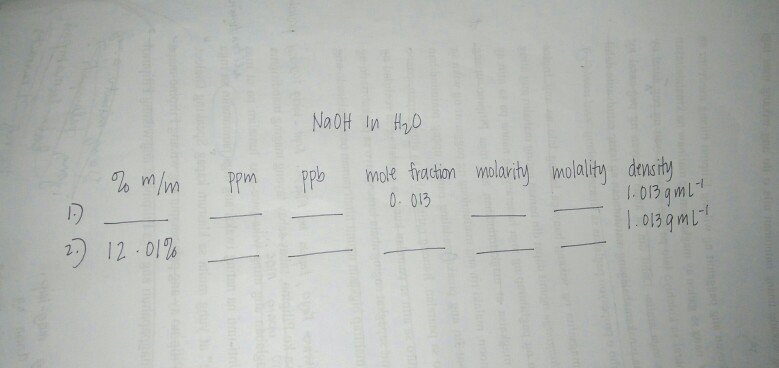 NaOH in H₂O
% m/m ppm ppb mole fraction molarity molality density
1.) ____ ____ ____ 0.013 ____ ____ 1.013 g mL⁻¹
2.) 12.01% ____ ____ ____ ____ ____ 1.013 g mL⁻¹